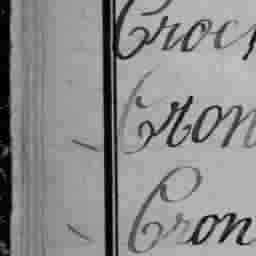 Croc
Cron
Cron